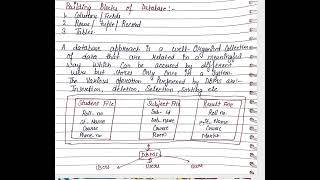 Building Blocks of Database:-
1. Columns / Fields
2. Rows / Tuple / Record
3. Tables.
A database approach is a well-organized collection
of data that are related in a meaningful
way which can be accessed by different
users but stores only once in a system.
The various operation performed by DBMS are:-
Insertion, deletion, Selection sorting etc
Student File Subject File Result File
Roll no. Sub-id Roll no.
St. Name Sub. name St. Name
Course Course Course
Phone no Marks
DBMS
Users Users Users